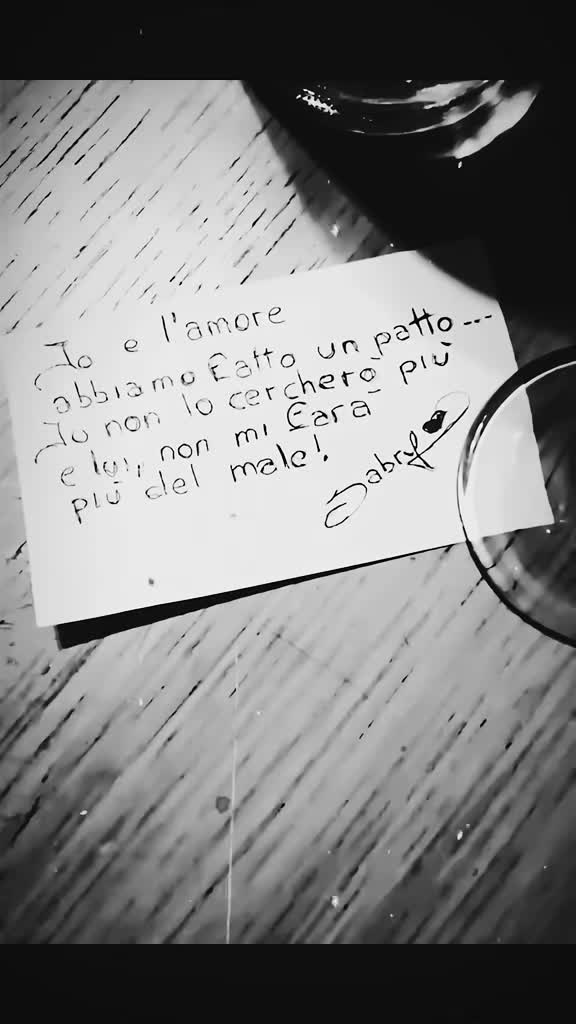 Io e l'amore
abbiamo fatto un patto...
Io non lo cercherò più
e lui, non mi farà
più del male!
Gabry